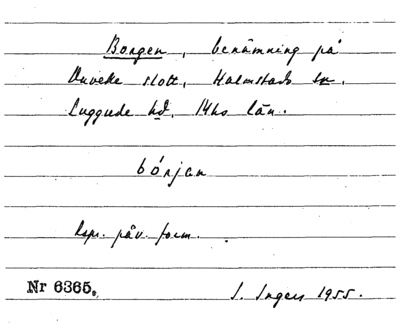 Borgen, benämning på
Duveke slott, Halmstads sn.
Luggude hd, Mhs län.
bórjan
Rspr. påv. form.
Nr 6365. I. Ingers 1955.